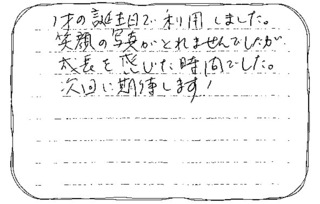 1才の誕生日で利用しました。
笑顔の写真がとれませんでしたが
成長を感じた時間でした。
次回に期待します!